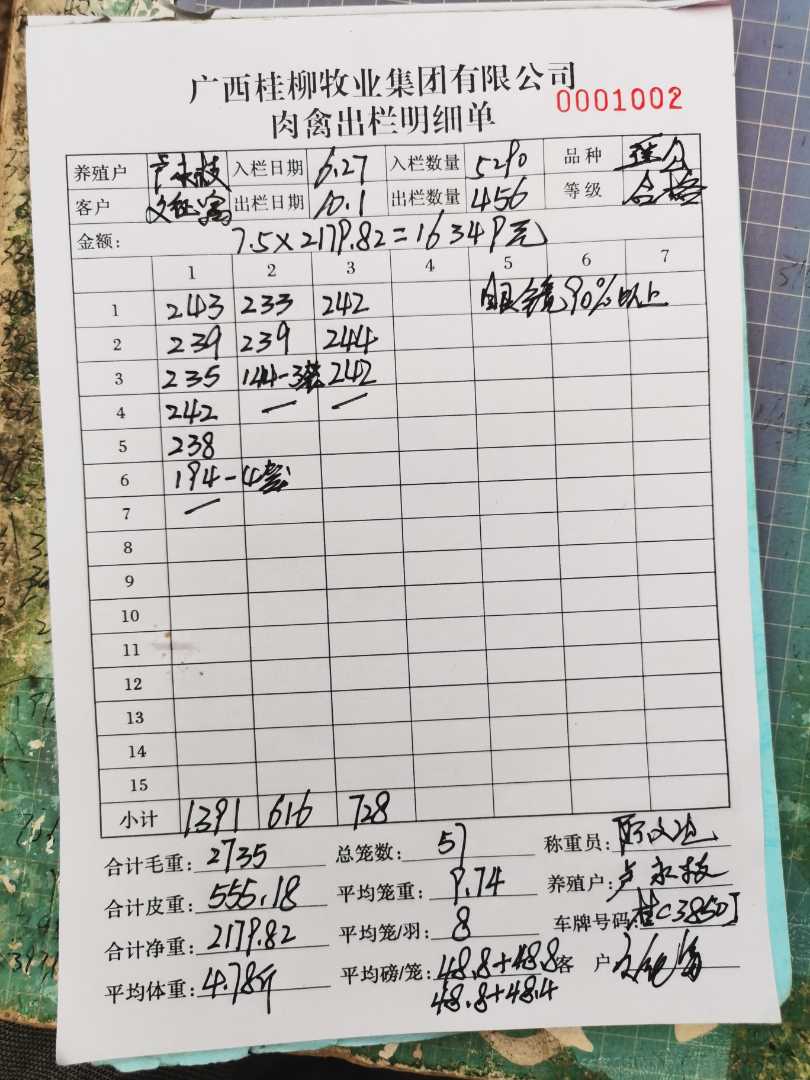 广西桂柳牧业集团有限公司
肉禽出栏明细单 0001002
养殖户 卢永枝 入栏日期 6.27 入栏数量 5290 品种
客户 出栏日期 10.1 出栏数量 456 等级 合格
金额: 7.5×2179.82=16349元
1 2 3 4 5 6 7
1 243 233 242 眼镜90%以上
2 239 239 244
3 235 144-3套 242
4 242 — —
5 238
6 194-4套
7 —
8
9
10
11
12
13
14
15
小计 1391 616 728
合计毛重: 2735 总笼数: 57 称重员:
合计皮重: 555.18 平均笼重: 9.74 养殖户: 卢永枝
合计净重: 2179.82 平均笼/羽: 8 车牌号码: 桂C3850J
平均体重: 4.78斤 平均磅/笼: 48.8+48.8 客户
48.8+48.4